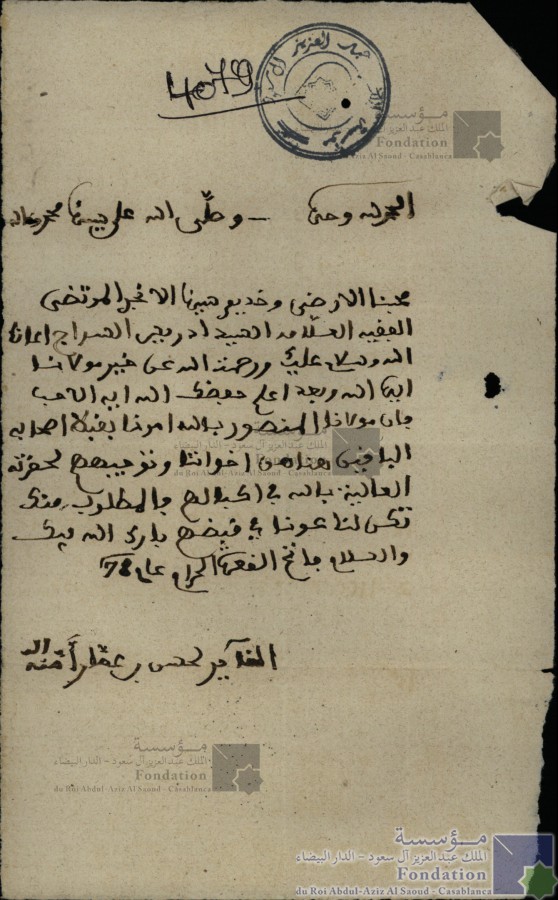 4079
مؤسسة
الملك عبد العزيز آل سعود - الدار البيضاء
Fondation
du Roi Abdul-Aziz Al Saoud - Casablanca
الحمد لله وحده وصلى الله على سيدنا محمد وآله
محبنا الارضى وخديم سيدنا الانجد المرتضى
الفقيه العلامه السيد ادريس السراج اعانك
الله وسلام عليك ورحمت الله عن خير مولانا
ايده الله وبعد اعلم حفظك الله ايه الاحب
بان مولانا المنصور بالله امرنا بقبلة اصحابه
الباقين هنا من اخواننا ونوجيههم لحضرته
العالية بالله في اكبالهم والمطلوب منك
تكن لنا عونا في قبضهم بارك الله فيك
والسلام فاتح القعدة الحرام عام 78
لحسن بن امنه الله
مؤسسة
الملك عبد العزيز آل سعود - الدار البيضاء
Fondation
du Roi Abdul-Aziz Al Saoud - Casablanca
مؤسسة
الملك عبد العزيز آل سعود - الدار البيضاء
Fondation
du Roi Abdul-Aziz Al Saoud - Casablanca